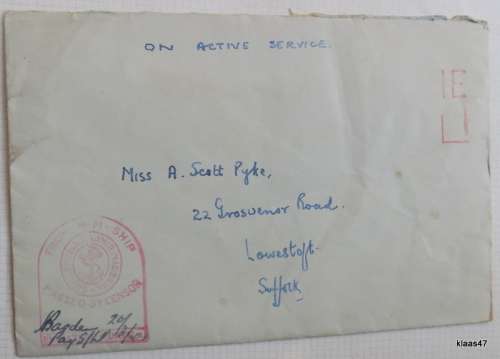 ON ACTIVE SERVICE.
Miss A. Scott Pyke,
22 Grosvenor Road.
Lowestoft.
Suffolk
FROM H.M. SHIP
PASSED BY CENSOR
klaas47